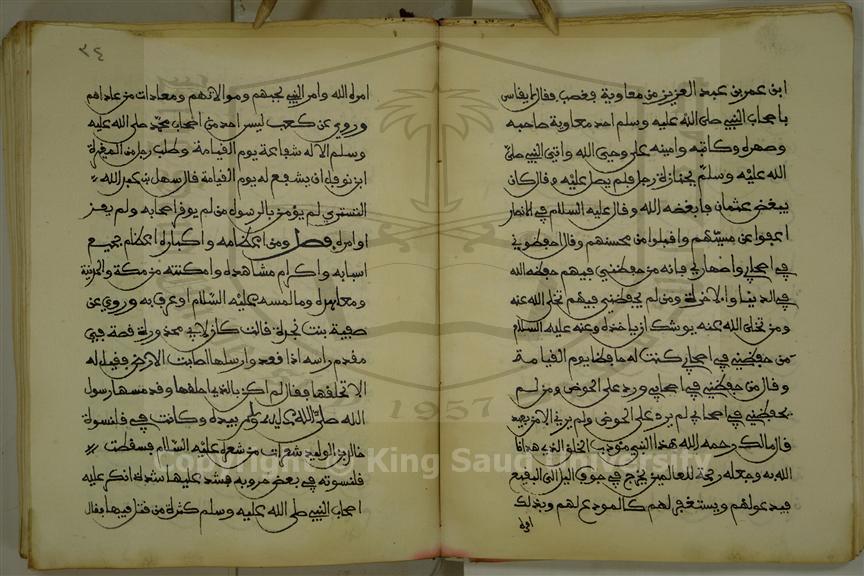 ابن عمر بن عبد العزيز من معاوية فغضب وقال لا يقاس
باصحاب النبي صلى الله عليه وسلم احد معاوية صاحبه
وصهره وكاتبه وامينه على وحي الله واتي النبي صلى
الله عليه وسلم بجنازة رجل فلم يصل عليه وقال كان
يبغض عثمان فابغضه الله وقال عليه السلام في الانصار
اعفوا عن مسيئهم واقبلوا من محسنهم وقال احفظوني
في اصحابي واصهاري فانه من حفظني فيهم حفظه الله
في الدنيا والاخرة ومن لم يحفظني فيهم تخلى الله عنه
ومن تخلى الله عنه يوشك ان ياخذه وعنه عليه السلام
من حفظني في اصحابي كنت له حافظا يوم القيامة
وقال من حفظني في اصحابي ورد على الحوض ومن لم
يحفظني في اصحابي لم يرد على الحوض ولم يرني الا من بعيد
قال مالك رحمه الله هذا النبي مؤدب الخلق الذي هدانا
الله به وجعله رحمة للعالمين يخرج في جوف اليل الى البقيع
فيدعو لهم ويستغفر لهم كالمودع لهم وبذلك
امره
٣٤
امره الله وامر النبي بحبهم وموالاتهم ومعادات من عاداهم
وروي عن كعب ليس احد من اصحاب محمد صلى الله عليه
وسلم الا له شفاعة يوم القيامة وطلب رجل من المغيرة
ابن نوفل ان يشفع له يوم القيامة قال سهل بن عبد الله
التستري لم يؤمن بالرسول من لم يوقر اصحابه ولم يعز
اوامره فصل ومن اعظامه واكباره اعظام جميع
اسبابه واكرام مشاهده وامكنته من مكة والمدينة
ومعاهده وما لمسه عليه السلام او عرف به وروي عن
صفية بنت نجدة قالت كان لابي محذورة قصة في
مقدم راسه اذا قعد وارسلها اصابت الارض فقيل له
الا تحلقها فقال لم اكن بالذي احلقها وقد مسها رسول
الله صلى الله عليه وسلم بيده وكانت في قلنسوة
خالد بن الوليد شعرات من شعره عليه السلام فسقطت
قلنسوته في بعض حروبه فشد عليها شدة انكر عليه
اصحاب النبي صلى الله عليه وسلم كثرة من قتل فيها فقال
Copyright © King Saud University
1957